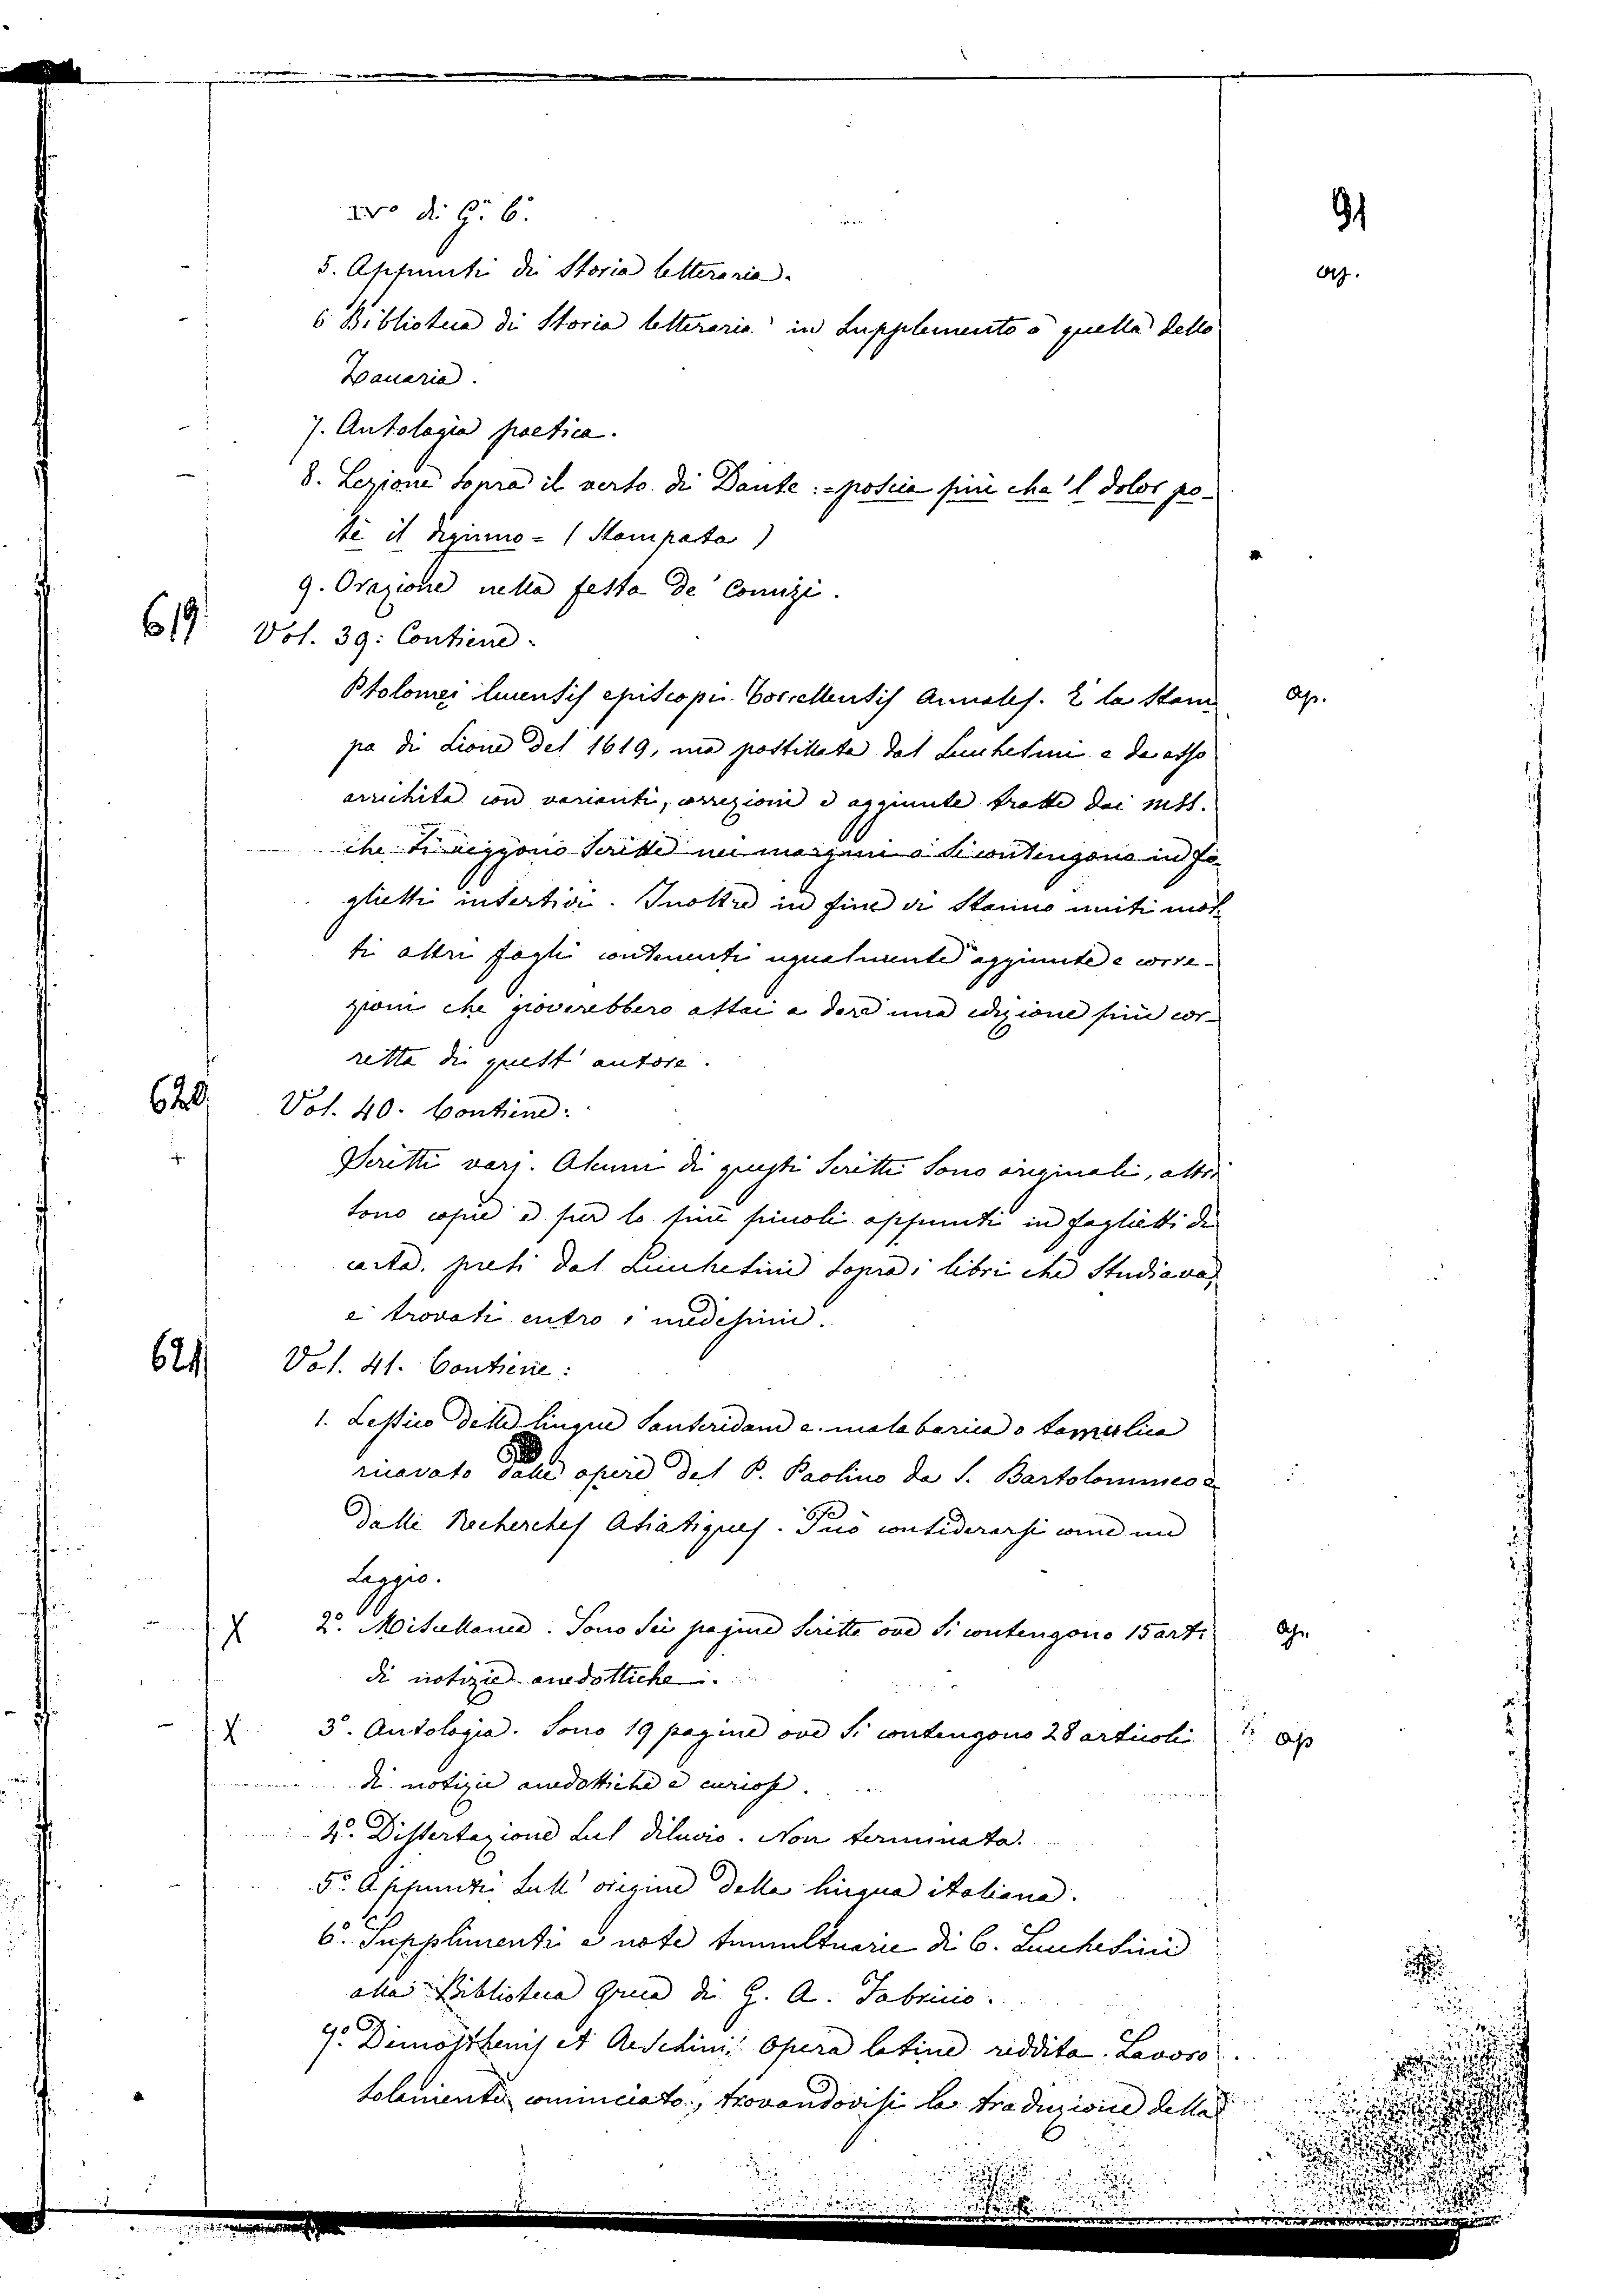 91
di G. C.
5. Appunti di Storia letteraria.
ap.
6 Biblioteca di Storia letteraria in Supplemento a quella dello
Zaccaria.
7. Antologia poetica.
8. Lezione sopra il verso di Dante: = poscia più che 'l dolor po-
tè il digiuno = (Stampata)
9. Orazione nella festa de' Comizi.
619
Vol. 39: Contiene.
Ptolomei lucensis episcopi Torcellensis Annales. È la Stam
ap.
pa di Lione del 1619, ma postillata dal Lucchesini e da esso
arrichita con varianti, correzioni e aggiunte tratte dai mss.
che si leggono scritte nei margini o si contengono in fo
glietti intertivi. Inoltre in fine vi stanno uniti mol
ti altri fogli contenenti ugualmente aggiunte e corre-
zioni che gioverebbero assai a dare una edizione più cor-
retta di quest' autore.
620
Vol. 40. Contiene:
Scritti varj. Alcuni di questi Scritti sono originali, altri
sono copie e per lo più piccoli appunti in foglietti di
carta, presi dal Lucchesini sopra i libri che Studiava,
e trovati entro i medesimi.
621
Vol. 41. Contiene:
1. Lessico delle lingue Santcridam e malabarica o tamulica
ricavato dalle opere del P. Paolino da S. Bartolommeo e
dalle Recherches Asiatiques. Può considerarsi come un
Saggio.
X 2.º Miscellanea. Sono sei pagine scritte ove si contengono 15 art.
ap.
di notizie anedottiche.
X 3.º Antologia. Sono 19 pagine ove si contengono 28 articoli
ap
di notizie anedottiche e curiose.
4.º Dissertazione sul diluvio. Non terminata.
5.º Appunti sull' origine della lingua italiana.
6.º Supplimenti e note tumultuarie di C. Lucchesini
alla Biblioteca Greca di G. A. Fabricio.
7.º Demosthenis et Aeschinis opera latine reddita. Lavoro
solamente cominciato, trovandovisi la traduzione della